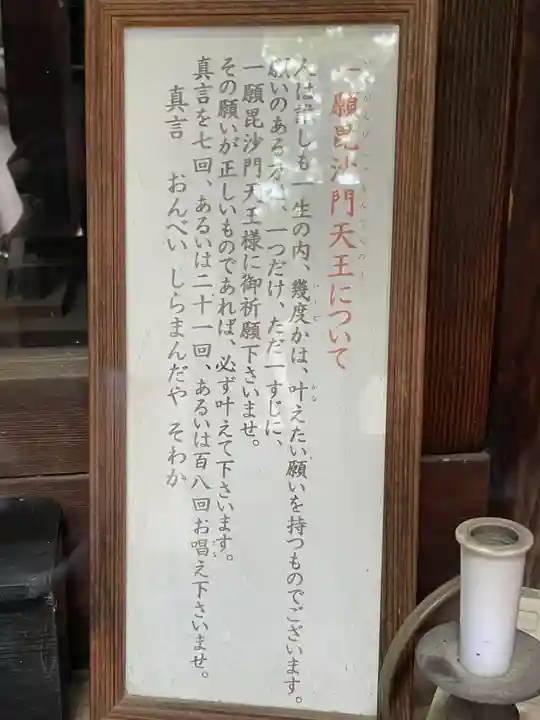 一願毘沙門天王について
人は誰しも一生の内、幾度かは、叶えたい願いを持つものでございます。
願いのある方は、一つだけ、ただ一すじに、
一願毘沙門天王様に御祈願下さいませ。
その願いが正しいものであれば、必ず叶えて下さいます。
真言を七回、あるいは二十一回、あるいは百八回お唱え下さいませ。
真言 おんべい しらまんだや そわか